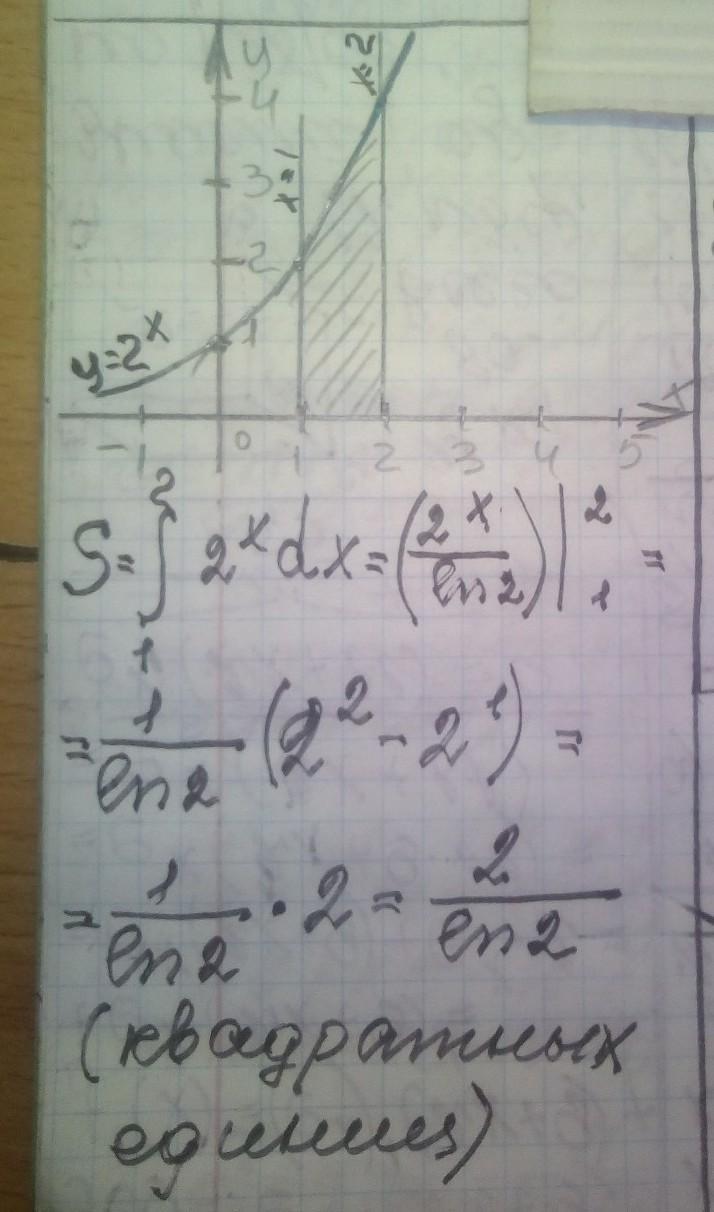 y
4
x=2
3
x=1
2
1
y=2^x
x
-1 0 1 2 3 4 5
S=∫₁² 2^x dx=(2^x/ln2)|₁² =
=1/ln2 (2² - 2¹) =
=1/ln2 · 2 = 2/ln2
(квадратных
единиц)